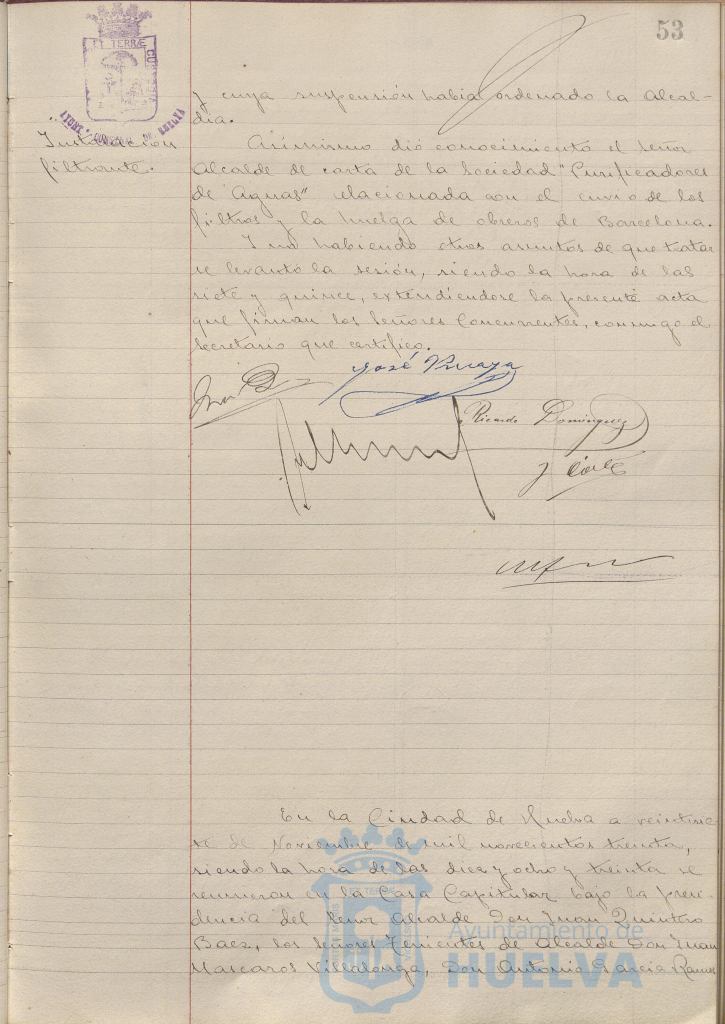 53
y cuya suspensión habia ordenado la Alcal-
dia.
Instalación
filtrante.
Asimismo dió conocimiento el señor
Alcalde de carta de la Sociedad "Purificadores
de Aguas" relacionada con el envio de los
filtros y la huelga de obreros de Barcelona.
Y no habiendo otros asuntos de que tratar
se levantó la sesión, siendo la hora de las
siete y quince, extendiendose la presente acta
que firman los Señores Concurrentes, conmigo el
Secretario que certifico.
José
Ricardo Dominguez
En la Ciudad de Huelva a veintisie-
te de Noviembre de mil novecientos treinta,
siendo la hora de las diez y ocho y treinta se
reunieron en la Casa Capitular bajo la presi-
dencia del Señor Alcalde Don Juan Quintero
Baez, los Señores Tenientes de Alcalde Don Juan
Mascaros Villalonga, Don Antonio Garcia Ramos
Ayuntamiento de
HUELVA